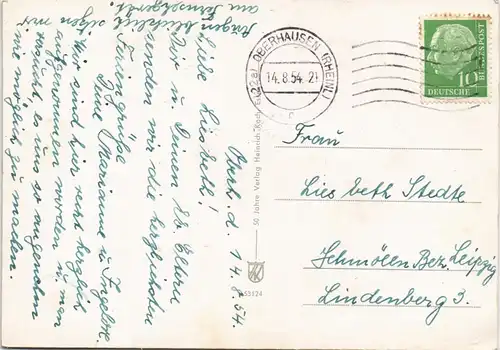 Oberh. d. 14.8.54.
Liebe Liesbeth!
Dir u. Deinen lb. Eltern
senden wir die herzlichsten
Feriengrüße
Deine Marianne u. Ingelore.
Wir sind hier recht herzlich
aufgenommen worden u. man
versucht, es uns so angenehm
wie möglich zu machen.
Augenblicklich sitzen wir
am Fernsehgerät.
50 Jahre Verlag Heinrich
(22a) OBERHAUSEN (RHEINL)
14.8.54.-21
DEUTSCHE BUNDESPOST
10
Frau
Liesbeth Stedte
Schmölln Bez. Leipzig
Lindenberg 3.